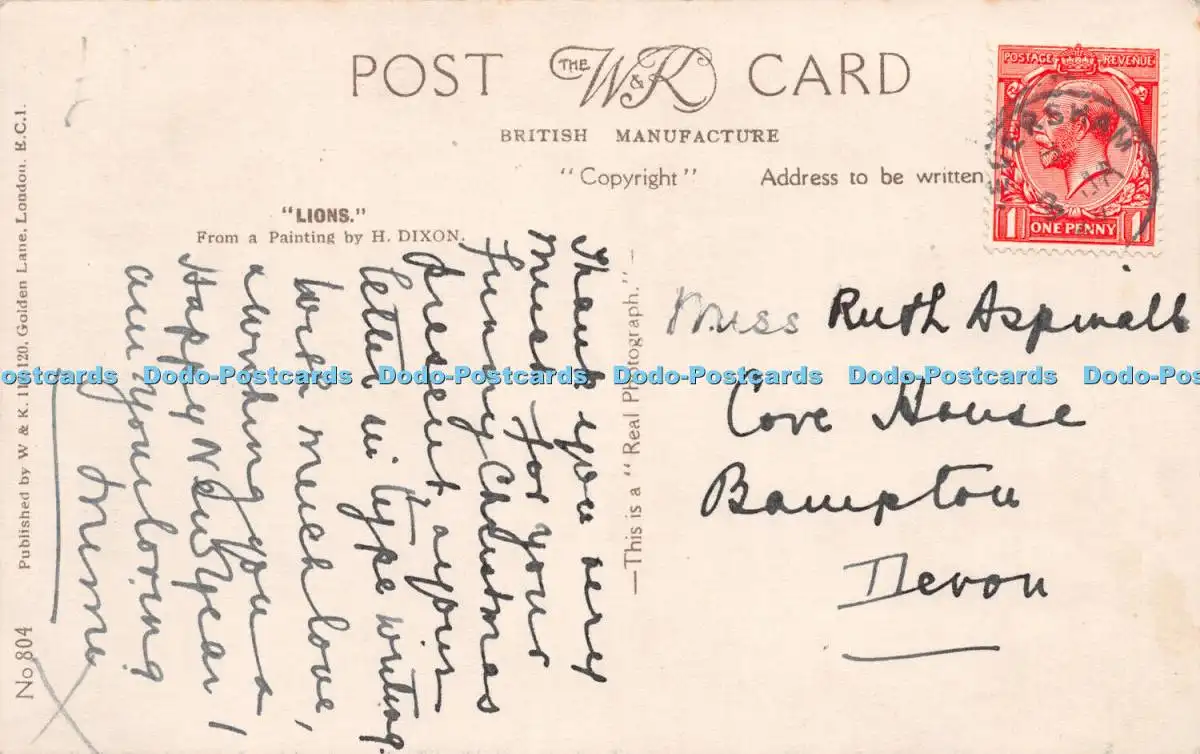 POST THE W & K CARD
BRITISH MANUFACTURE
"Copyright" Address to be written
POSTAGE REVENUE
EVERSHAM
1 ONE PENNY 1
"LIONS."
From a Painting by H. DIXON.
Thank you very
much for your
funny Christmas
present, & your
letter in type writing.
With much love,
& wishing you a
Happy New Year!
am your loving
—This is a "Real Photograph."—
Miss Ruth Aspinall
Cove House
Bampton
Devon
Published by W & K. 120, Golden Lane, London. E.C.1.
No 804
Dodo-Postcards Dodo-Postcards Dodo-Postcards Dodo-Postcards Dodo-Postcards Dodo-Postcards